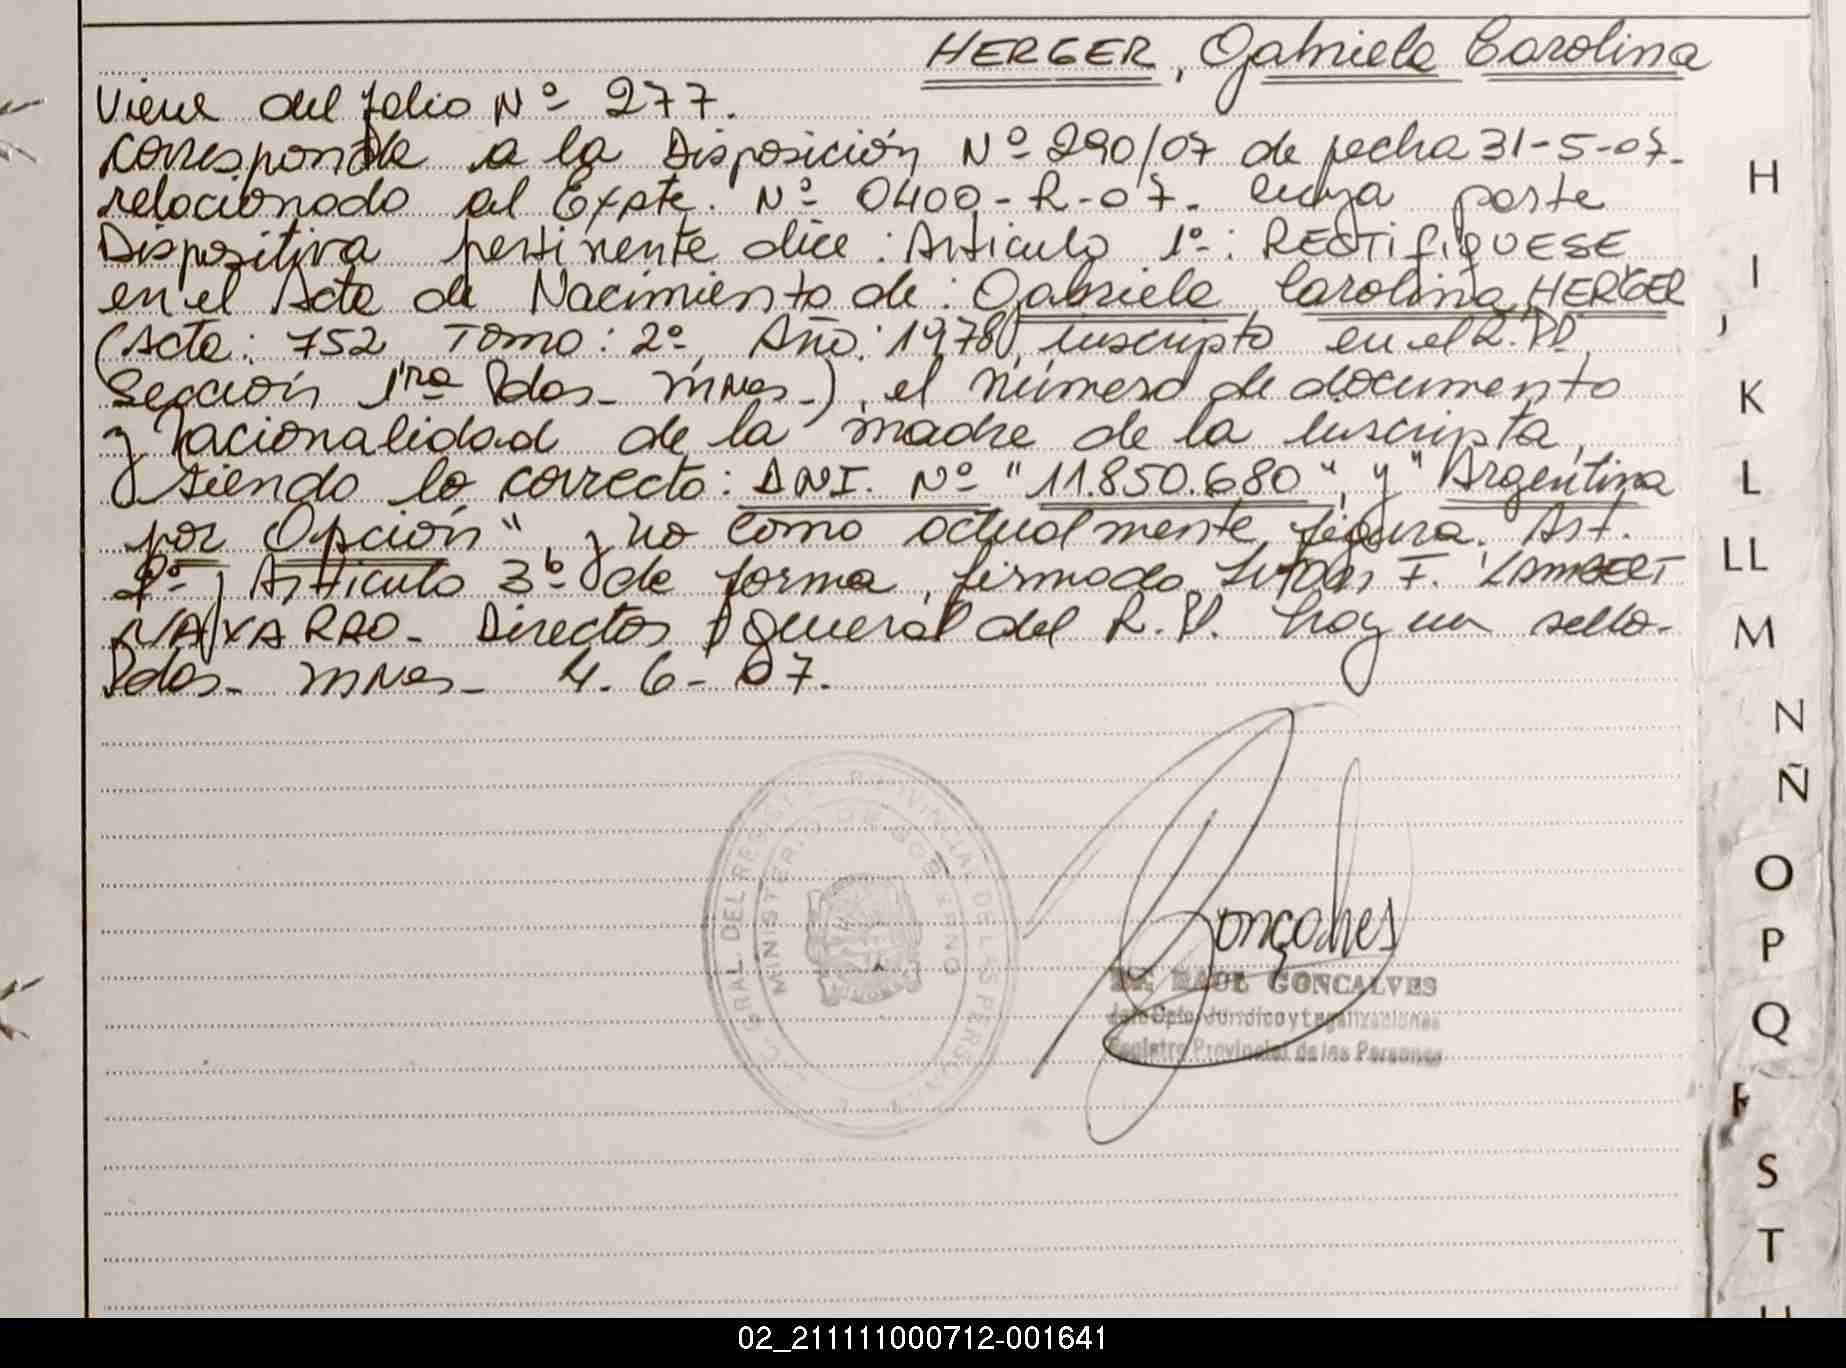 HERGER, Gabriela Carolina
Viene del folio Nº 277.
Corresponde a la Disposición Nº 290/07 de fecha 31-5-07.
relacionado al Expte. Nº 0400-R-07. cuya parte
Dispositiva pertinente dice: Articulo 1º: RECTIFIQUESE
en el Acta de Nacimiento de: Gabriela Carolina HERGER
(Acta: 752, Tomo: 2º, Año: 1978, inscripta en el R.P.
Sección 1ra Pdas. Mnes.), el número de documento
y nacionalidad de la madre de la inscripta,
siendo lo correcto: DNI. Nº "11.850.680", y "Argentina
por Opción" y no como actualmente figura. Art.
2º y Articulo 3º de forma, firmado
Director general del R.P. hay un sello.
Pdas. Mnes. 4-6-07.
MINISTERIO DE GOBIERNO
Gonçalves
RAUL GONCALVES
Jefe Dpto. Jurídico y Legalizaciones
Registro Provincial de las Personas
H
I
J
K
L
LL
M
N
Ñ
O
P
Q
R
S
T
02_211111000712-001641